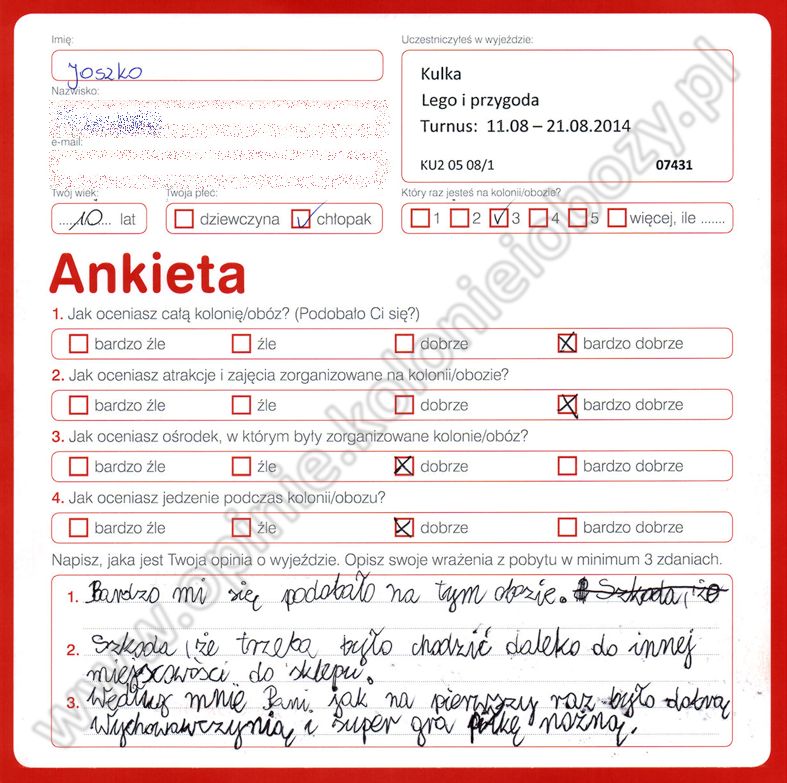 Imię:
Joszko
Nazwisko:
e-mail:
Twój wiek:
10 lat
Twoja płeć:
dziewczyna chłopak
Uczestniczyłeś w wyjeździe:
Kulka
Lego i przygoda
Turnus: 11.08 – 21.08.2014
KU2 05 08/1 07431
Który raz jesteś na kolonii/obozie?
1 2 3 4 5 więcej, ile .......
Ankieta
1. Jak oceniasz całą kolonię/obóz? (Podobało Ci się?)
bardzo źle źle dobrze bardzo dobrze
2. Jak oceniasz atrakcje i zajęcia zorganizowane na kolonii/obozie?
bardzo źle źle dobrze bardzo dobrze
3. Jak oceniasz ośrodek, w którym były zorganizowane kolonie/obóz?
bardzo źle źle dobrze bardzo dobrze
4. Jak oceniasz jedzenie podczas kolonii/obozu?
bardzo źle źle dobrze bardzo dobrze
Napisz, jaka jest Twoja opinia o wyjeździe. Opisz swoje wrażenia z pobytu w minimum 3 zdaniach.
1. Bardzo mi się podobało na tym obozie. Szkoda, że
2. Szkoda, że trzeba było chodzić daleko do innej
miejscowości do sklepu.
3. Według mnie Pani jak na pierwszy raz było dobrą
wychowawczynią i super gra piłkę nożną.
www.opinie.kolonieiobozy.pl